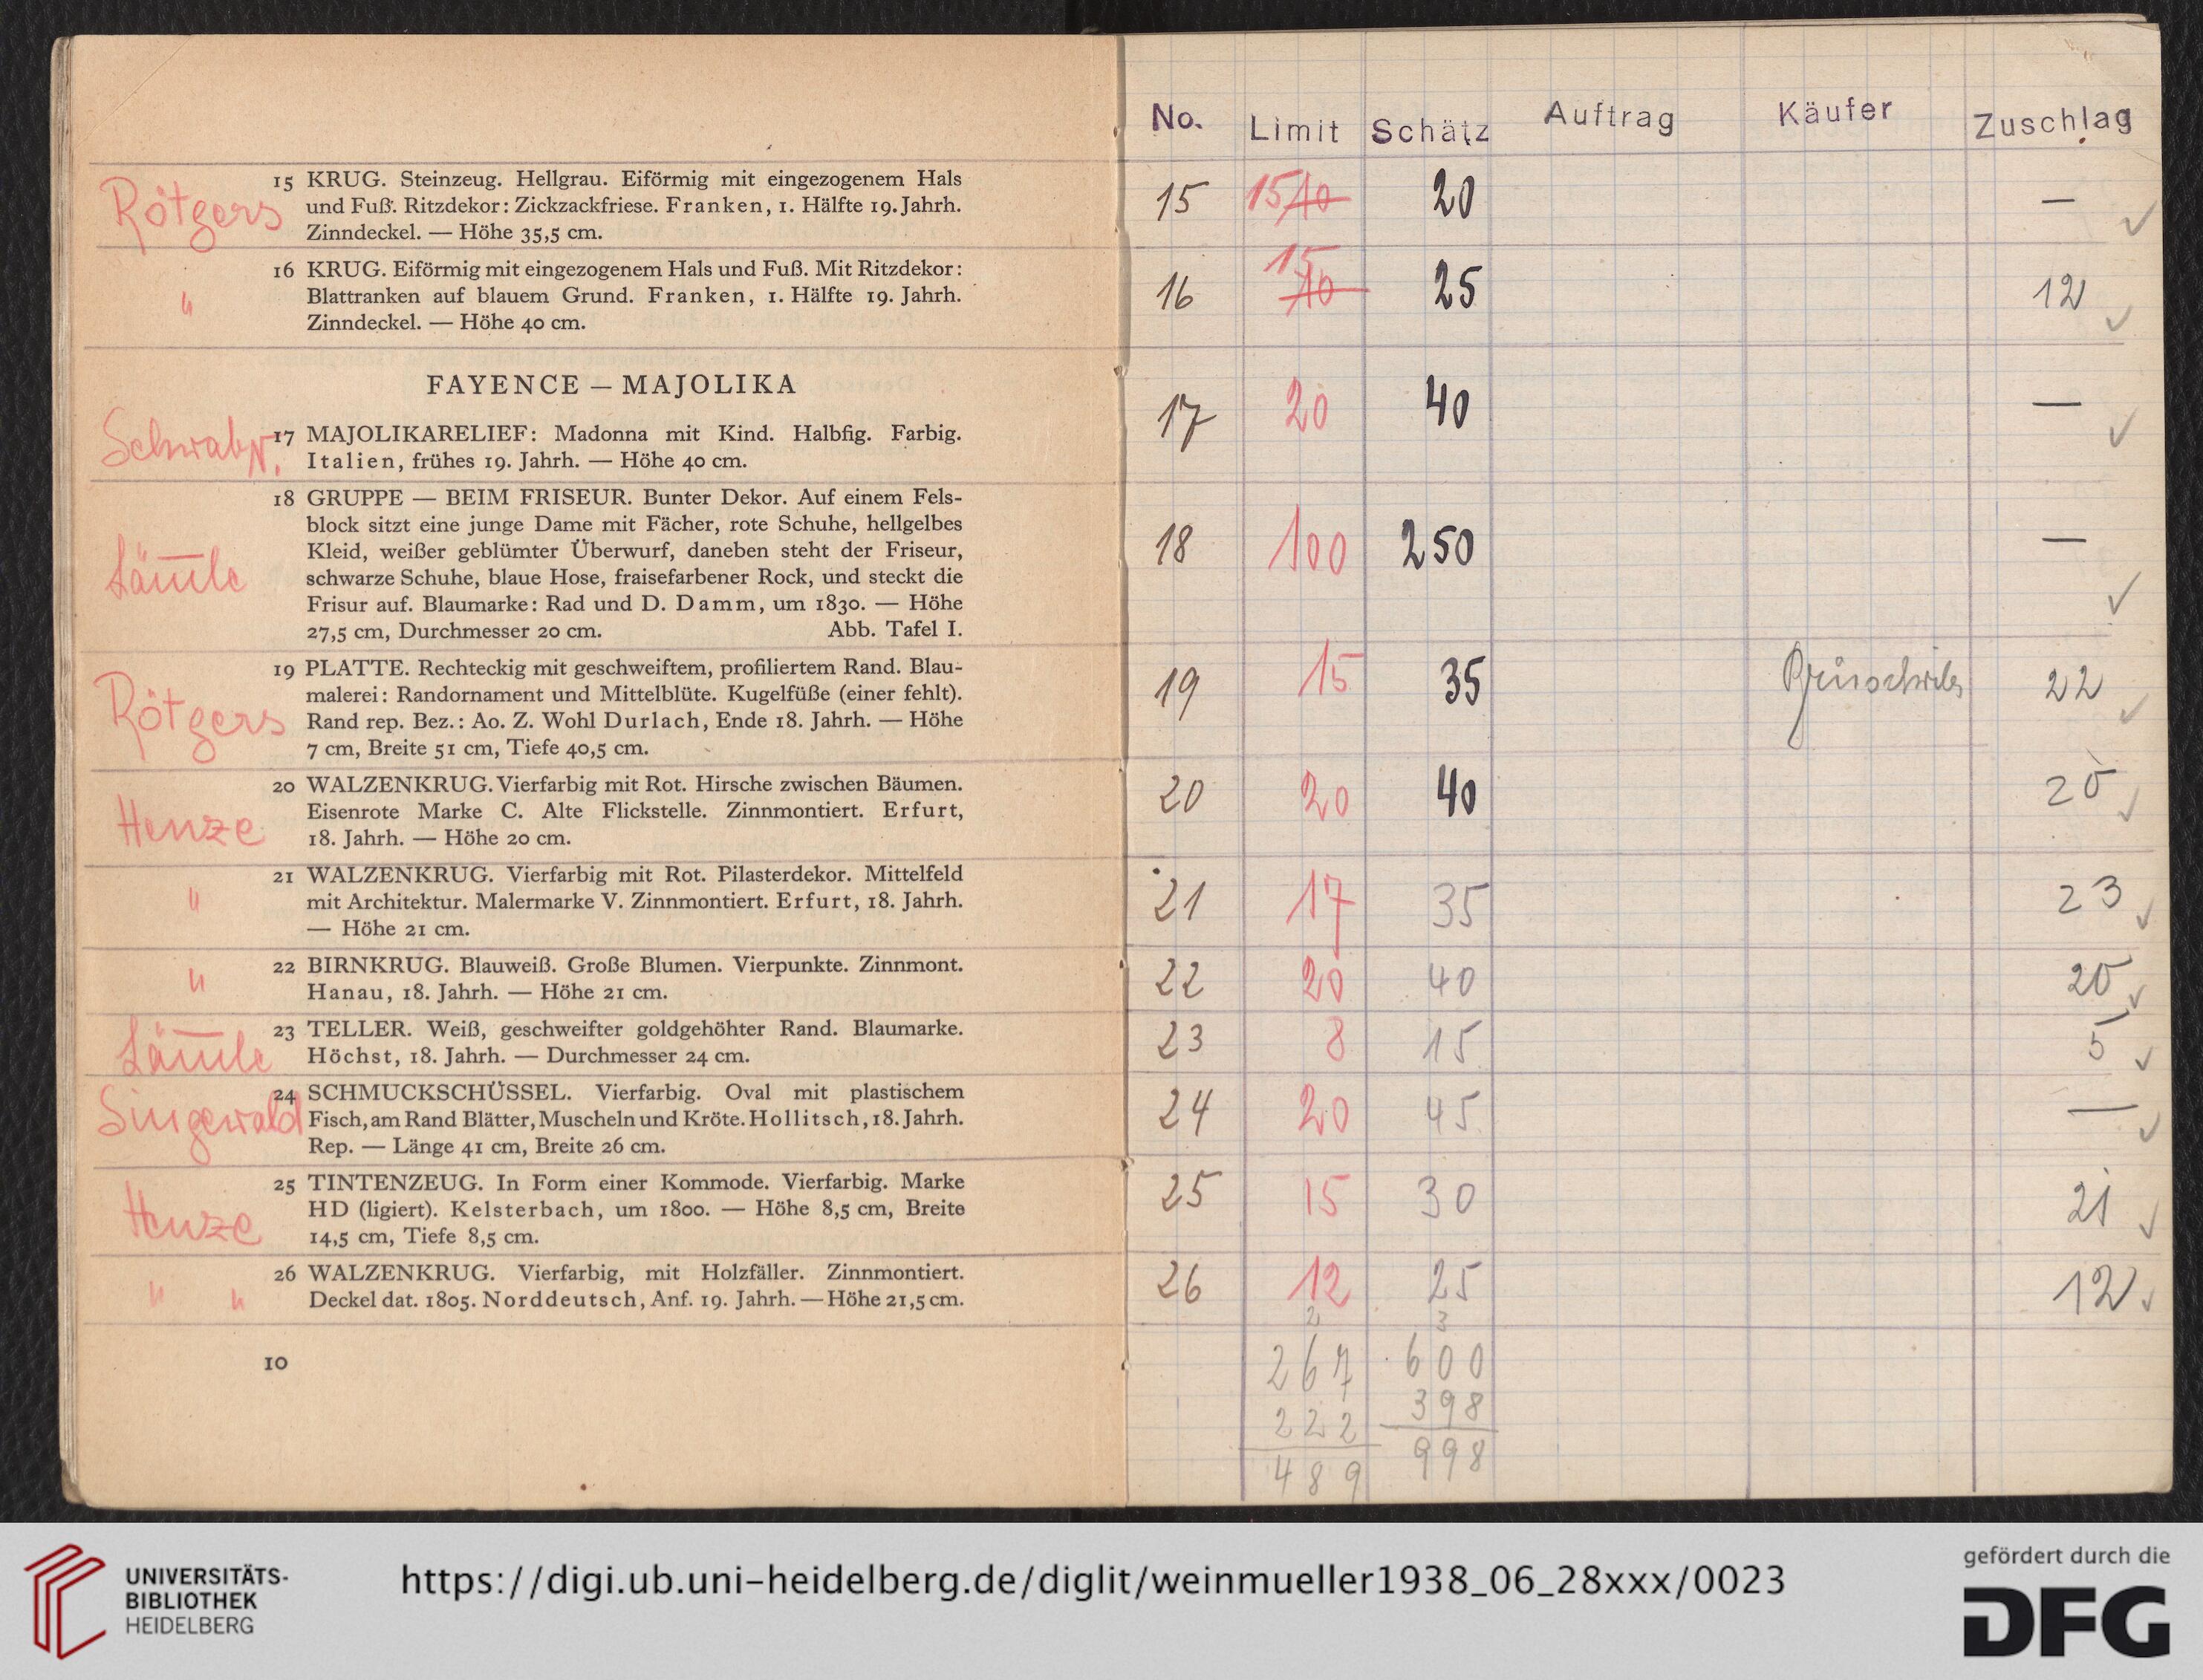 15 KRUG. Steinzeug. Hellgrau. Eiförmig mit eingezogenem Hals
und Fuß. Ritzdekor: Zickzackfriese. Franken, 1. Hälfte 19. Jahrh.
Zinndeckel. — Höhe 35,5 cm.
Rötgers
16 KRUG. Eiförmig mit eingezogenem Hals und Fuß. Mit Ritzdekor:
Blattranken auf blauem Grund. Franken, 1. Hälfte 19. Jahrh.
Zinndeckel. — Höhe 40 cm.
"
FAYENCE — MAJOLIKA
17 MAJOLIKARELIEF: Madonna mit Kind. Halbfig. Farbig.
Italien, frühes 19. Jahrh. — Höhe 40 cm.
18 GRUPPE — BEIM FRISEUR. Bunter Dekor. Auf einem Fels-
block sitzt eine junge Dame mit Fächer, rote Schuhe, hellgelbes
Kleid, weißer geblümter Überwurf, daneben steht der Friseur,
schwarze Schuhe, blaue Hose, fraisefarbener Rock, und steckt die
Frisur auf. Blaumarke: Rad und D. Damm, um 1830. — Höhe
27,5 cm, Durchmesser 20 cm. Abb. Tafel I.
19 PLATTE. Rechteckig mit geschweiftem, profiliertem Rand. Blau-
malerei: Randornament und Mittelblüte. Kugelfüße (einer fehlt).
Rand rep. Bez.: Ao. Z. Wohl Durlach, Ende 18. Jahrh. — Höhe
7 cm, Breite 51 cm, Tiefe 40,5 cm.
Rötgers
20 WALZENKRUG. Vierfarbig mit Rot. Hirsche zwischen Bäumen.
Eisenrote Marke C. Alte Flickstelle. Zinnmontiert. Erfurt,
18. Jahrh. — Höhe 20 cm.
Henze
21 WALZENKRUG. Vierfarbig mit Rot. Pilasterdekor. Mittelfeld
mit Architektur. Malermarke V. Zinnmontiert. Erfurt, 18. Jahrh.
— Höhe 21 cm.
"
22 BIRNKRUG. Blauweiß. Große Blumen. Vierpunkte. Zinnmont.
Hanau, 18. Jahrh. — Höhe 21 cm.
"
23 TELLER. Weiß, geschweifter goldgehöhter Rand. Blaumarke.
Höchst, 18. Jahrh. — Durchmesser 24 cm.
24 SCHMUCKSCHÜSSEL. Vierfarbig. Oval mit plastischem
Fisch, am Rand Blätter, Muscheln und Kröte. Hollitsch, 18. Jahrh.
Rep. — Länge 41 cm, Breite 26 cm.
Singewald
25 TINTENZEUG. In Form einer Kommode. Vierfarbig. Marke
HD (ligiert). Kelsterbach, um 1800. — Höhe 8,5 cm, Breite
14,5 cm, Tiefe 8,5 cm.
Henze
26 WALZENKRUG. Vierfarbig, mit Holzfäller. Zinnmontiert.
Deckel dat. 1805. Norddeutsch, Anf. 19. Jahrh. — Höhe 21,5 cm.
" "
10
No. Limit Schätz Auftrag Käufer Zuschlag
15 15 10 20 —
16 15 10 25 12
17 20 40 —
18 100 250 —
19 15 35 22
20 20 40 20
21 17 35 23
22 20 40 20
23 8 15 5
24 20 45 —
25 15 30 21
26 12 25 12
2 3
267 600
222 398
489 998
UNIVERSITÄTS-
BIBLIOTHEK
HEIDELBERG
https://digi.ub.uni-heidelberg.de/diglit/weinmueller1938_06_28xxx/0023
gefördert durch die
DFG